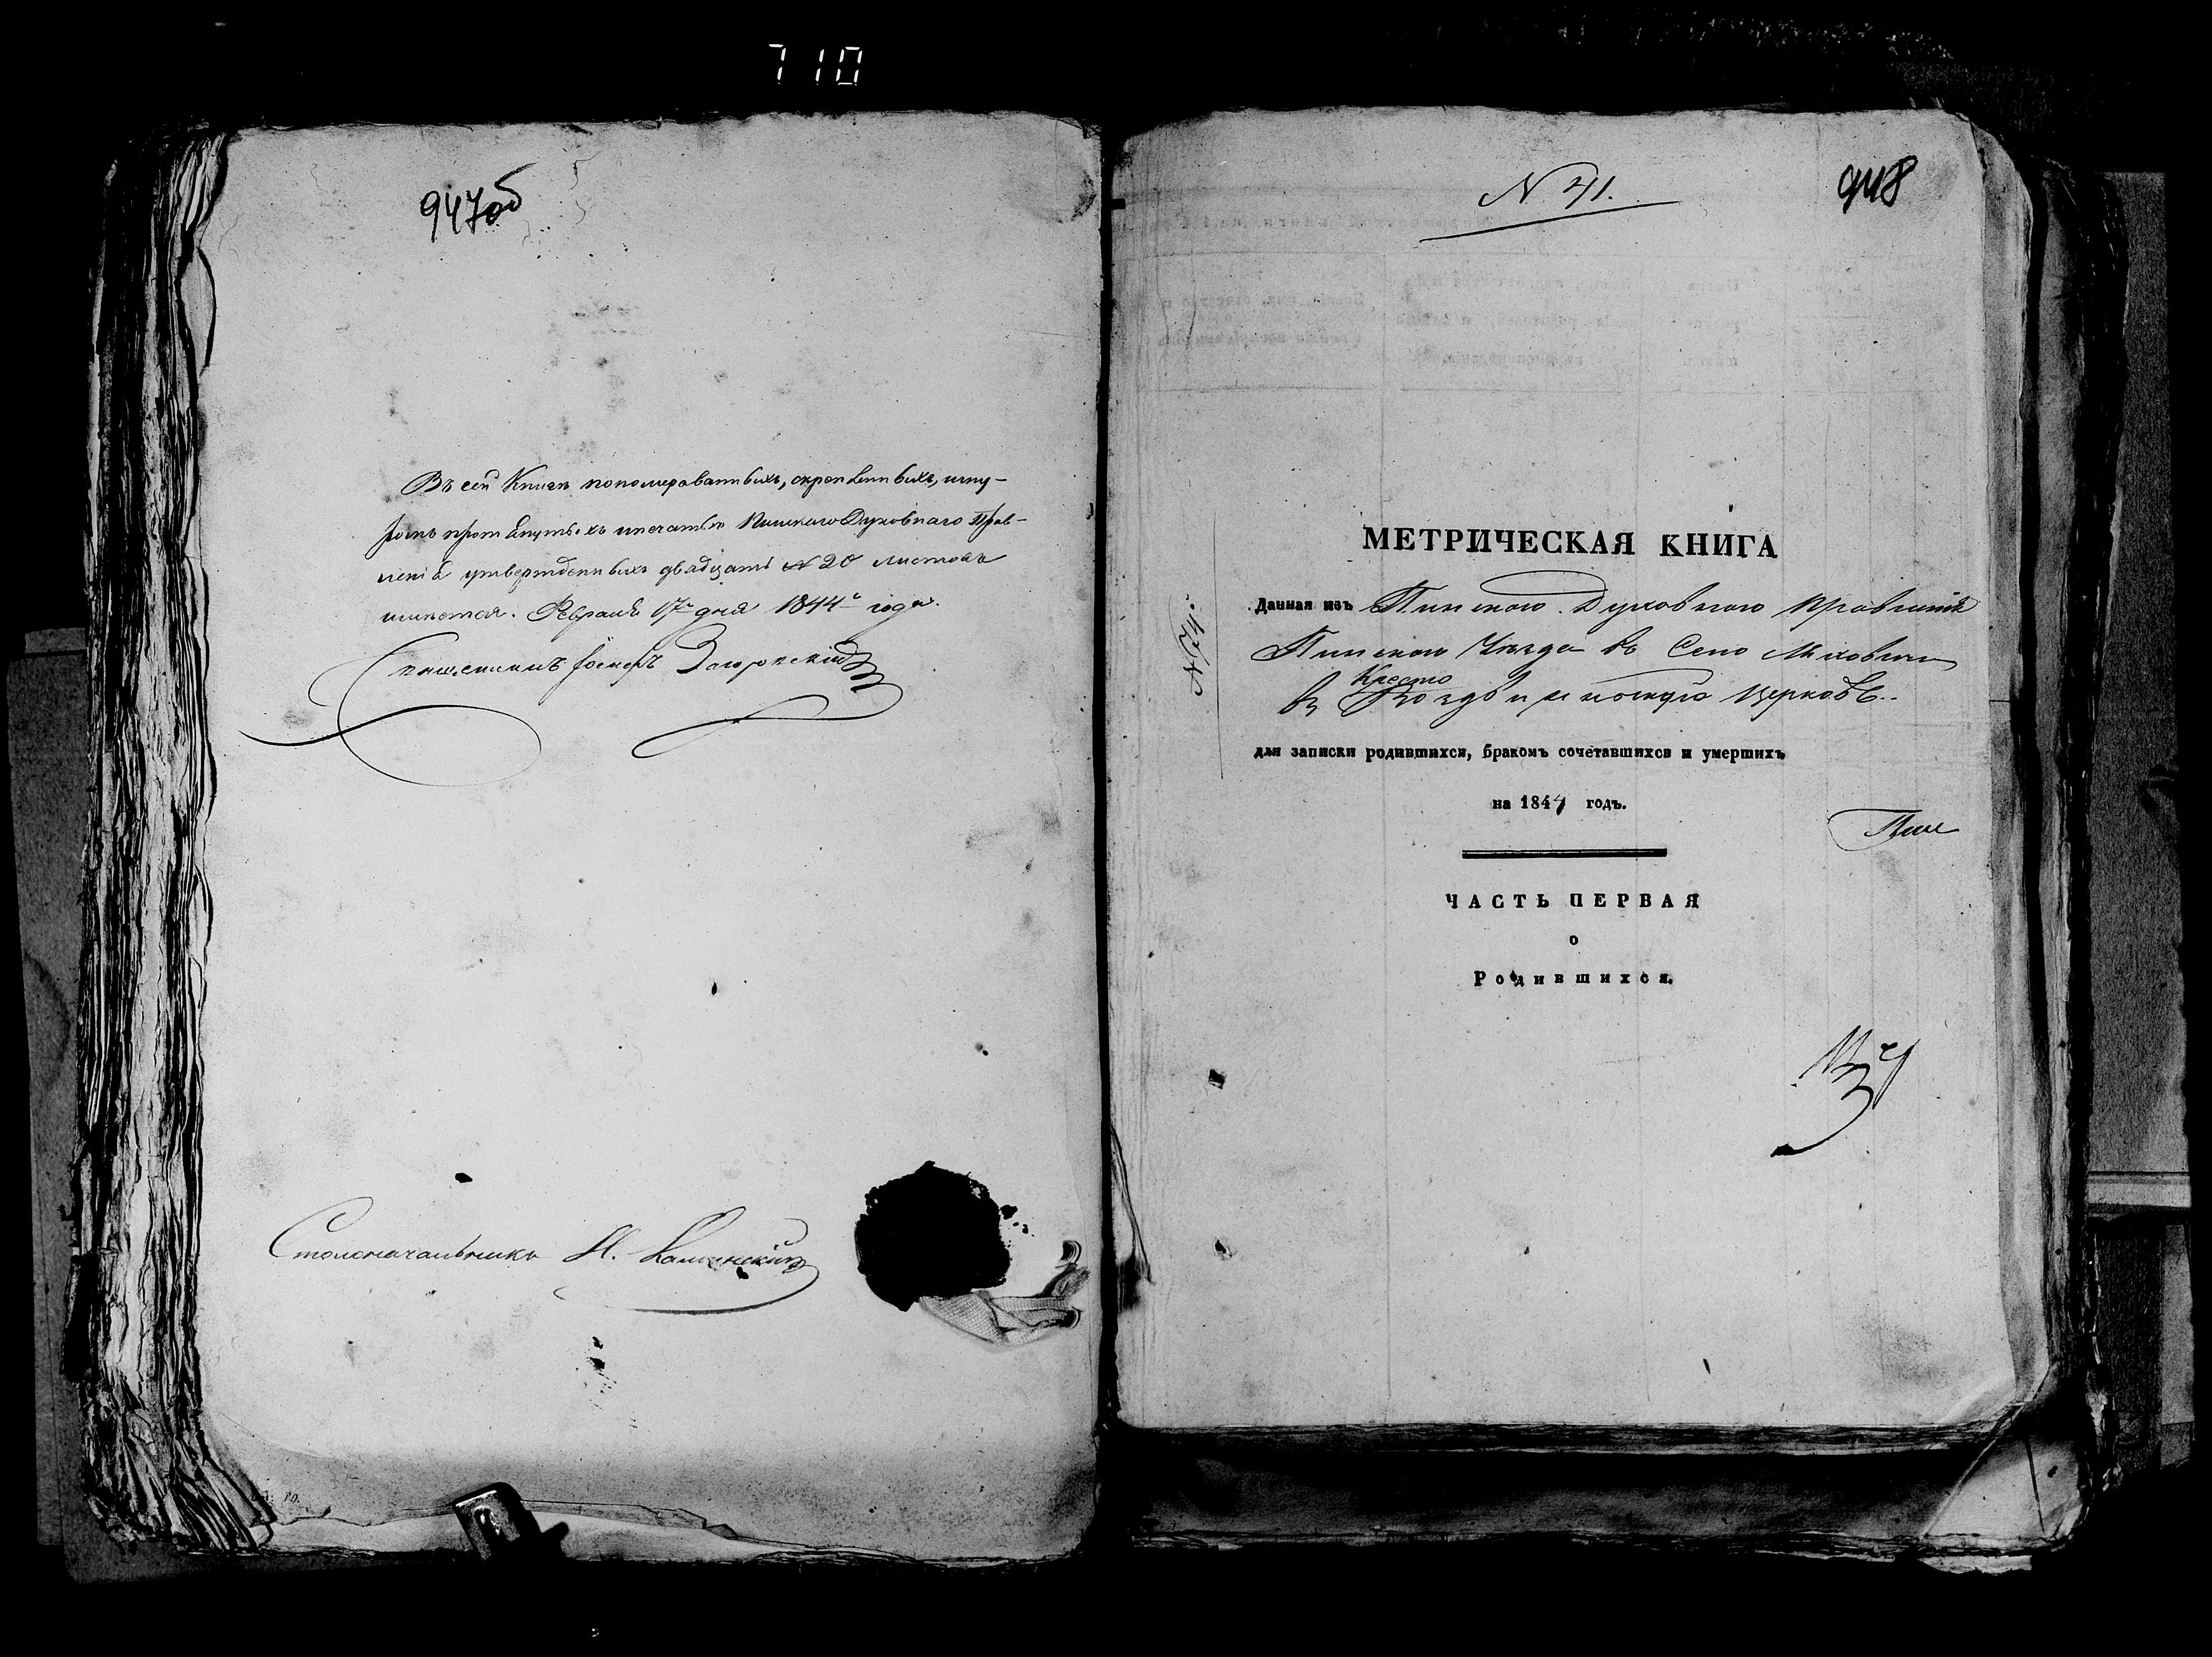 710
947об
Въ сей Книгѣ нономерованныхъ, скрепленныхъ, шну-
ромъ протянутыхъ и печатью Пинскаго Духовнаго Прав-
ленія утвержденныхъ двадцать N 20 листовъ
имѣется. Февраля 17го дня 1844го года.
Священникъ Іосифъ
Столоначальникъ
N 41.
948
МЕТРИЧЕСКАЯ КНИГА
N 24.
Данная изъ Пинскаго Духовнаго Правленія
Пинскаго Уѣзда въ Село Мѣховичи
въ Кресто
Воздвиженскую Церковь.
для записки родившихся, бракомъ сочетавшихся и умершихъ
на 1844 годъ.
ЧАСТЬ ПЕРВАЯ
о
Родившихся.